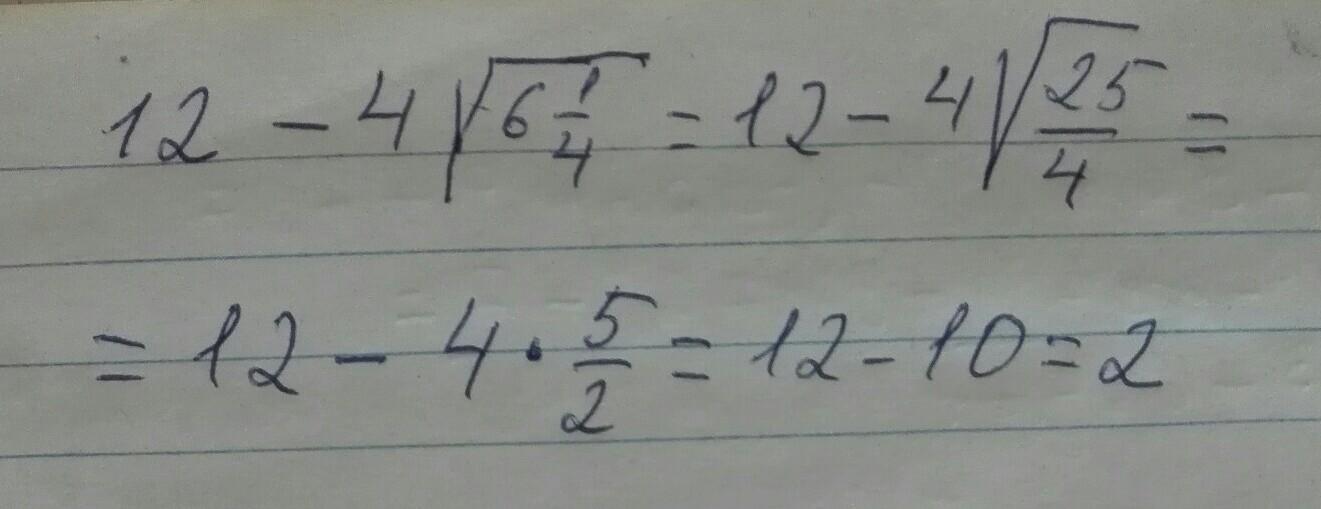 12 - 4√(6 1/4) = 12 - 4√(25/4) =
= 12 - 4 · 5/2 = 12 - 10 = 2